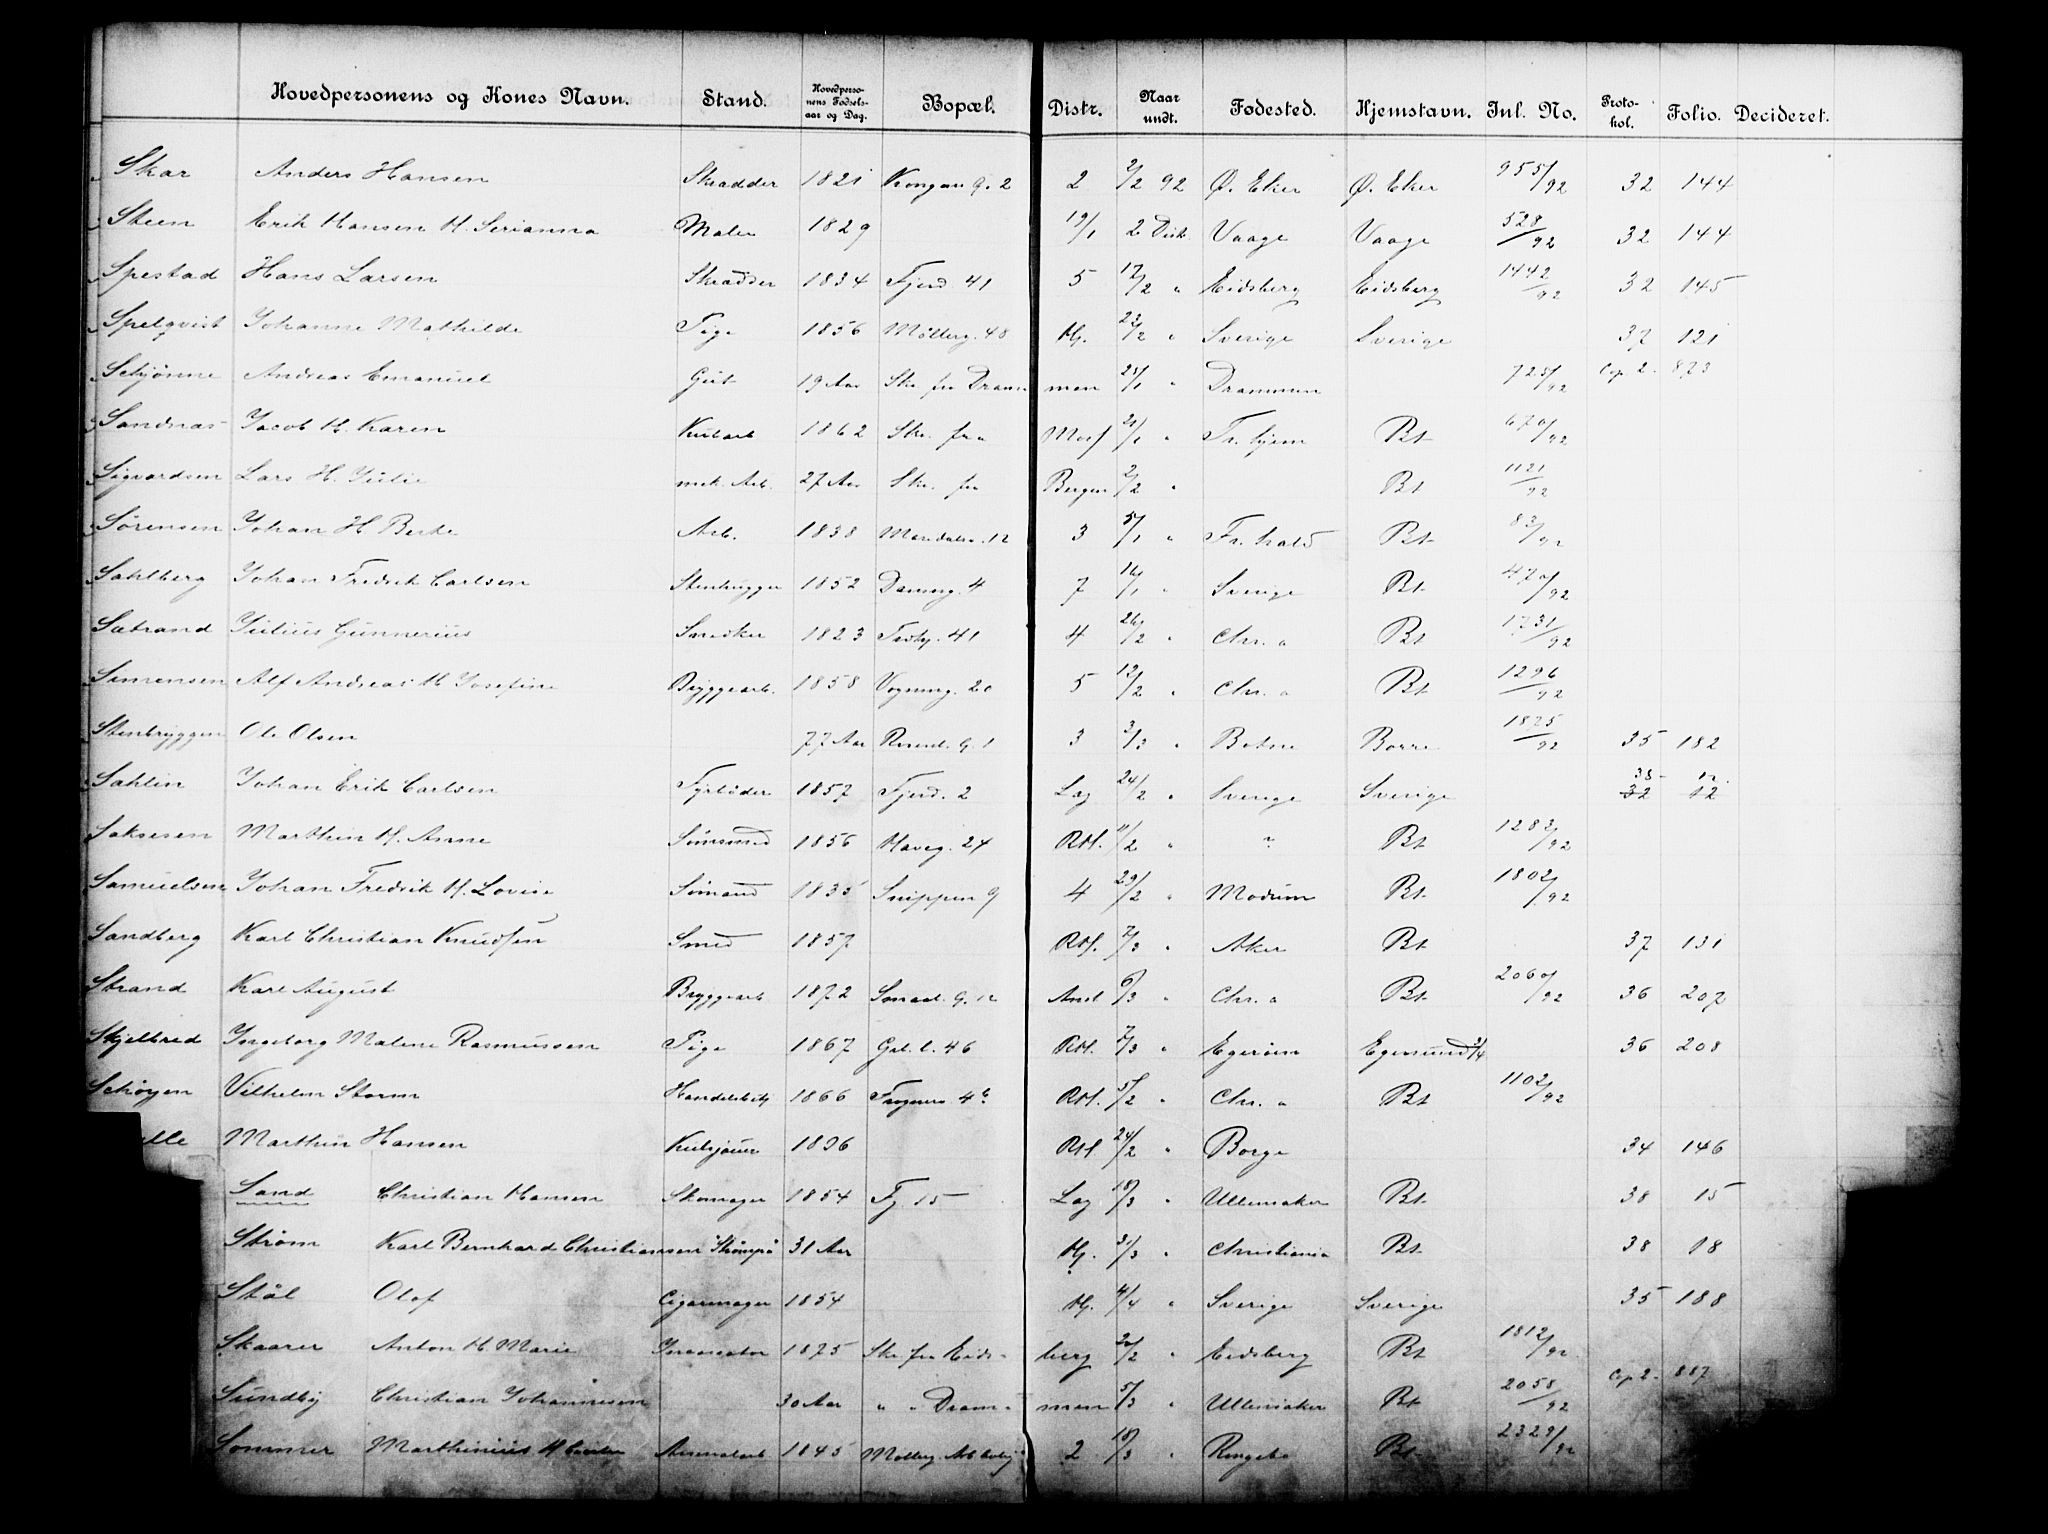 Hovedpersonens og Kones Navn. Stand. Hovedperso-nens Fødsels-aar og Dag. Bopæl. Distr. Naar undt. Fødested. Hjemstavn. Inl. No. Proto-kol. Folio. Decideret.
Skar Anders Hansen Skrædder 1821 Kongens G. 2 2 2/2 92 Ø. Eker Ø. Eker 955/92 32 144
Steen Erik Hansen H. Serianna Maler 1829 19/1 2 Dist. Vaage Vaage 528/92 32 144
Spestad Hans Larsen Skrædder 1834 Fjerd. 41 5 17/2 " Eidsberg Eidsberg 1442/92 32 145
Spelqvist Johanne Mathilde Pige 1856 Møllerg. 48 Hj. 23/2 " Sverige Sverige 37 121
Schjønne Andreas Emanuel Gut 19 Aar Skr. fra Drammen 25/1 " Drammen 725/92 Cop. 2 - 873
Sandnas Jacob H. Karen 1862 Skr. fra Moss 21/1 " Tr. hjem Bt 670/92
Sigvardsen Lars H. Julie mek. Arb. 27 Aar Skr. fra Bergen 2/2 " Bt 1121/92
Sørensen Johan H Berthe Arb. 1838 Maridalsv. 12 3 5/1 " Fr. hald Bt 83/92
Sahlberg Johan Fredrik Carlsen Stenhugger 1852 4 7 16/1 " Sverige Bt 470/92
Sætrand Julius Gunnerius Snedker 1823 41 4 26/2 " Chr. a Bt 1731/92
Simensen Alf Andreas H Josefine Bryggearb. 1858 Vognmg. 20 5 12/2 " Chr. a Bt 1296/92
Stenbryggen Ole Olsen 77 Aar Rosenk. G. 1 3 3/3 " Botne Borre 1825/92 35 182
Sahlin Johan Erik Carlsen Fyrbøder 1857 Fjerd. 2 Lag 24/2 " Sverige Sverige 38 12 32 12
Saksesen Marthin H. Anne 1856 Haveg. 24 RH. 11/2 " " Bt 1282/92
Samuelsen Johan Fredrik H. Lovise Sømand 1835 Snippen 9 4 29/2 " Modum Bt 1802/92
Sandberg Karl Christian Knudsen Smed 1857 RH. 7/3 " Aker Bt 37 131
Strand Karl August Bryggearb 1872 Smaal. G. 12 And 6/3 " Chr. a Bt 2060/92 36 207
Skjelbred Ingeborg Malene Rasmussen Pige 1867 Grl. l. 46 RH. 7/3 " Egersun Egersund 2/4 36 208
Schøyen Vilhelm Storm Handelsbetj 1866 Frognerv 4b RH. 5/2 " Chr. a Bt 1102/92
Marthin Hansen Kulsjouer 1836 RH. 24/2 " Borge 34 146
Sand Christian Hansen Skomager 1854 Fj. 15 Lag 18/3 " Ullensaker Bt 38 15
Strøm Karl Bernhard Christiansen 31 Aar Hj. 31/3 " Christiania Bt 38 18
Stål Olof Cigarmager 1854 Hj. 4/4 " Sverige Sverige 35 188
Skaarer Anton H Marie 1875 Skr. fra Eidsberg 22/2 " Eidsberg Bt 1812/92
Sundby Christian Johannesen 30 Aar " " Drammen 5/3 " Ullensaker Bt 2058/92 Cop 2 - 887
Sommer Marthinius H Arsenalarb 1845 Møllerg. 2 18/3 " Ringebo Bt 2329/92